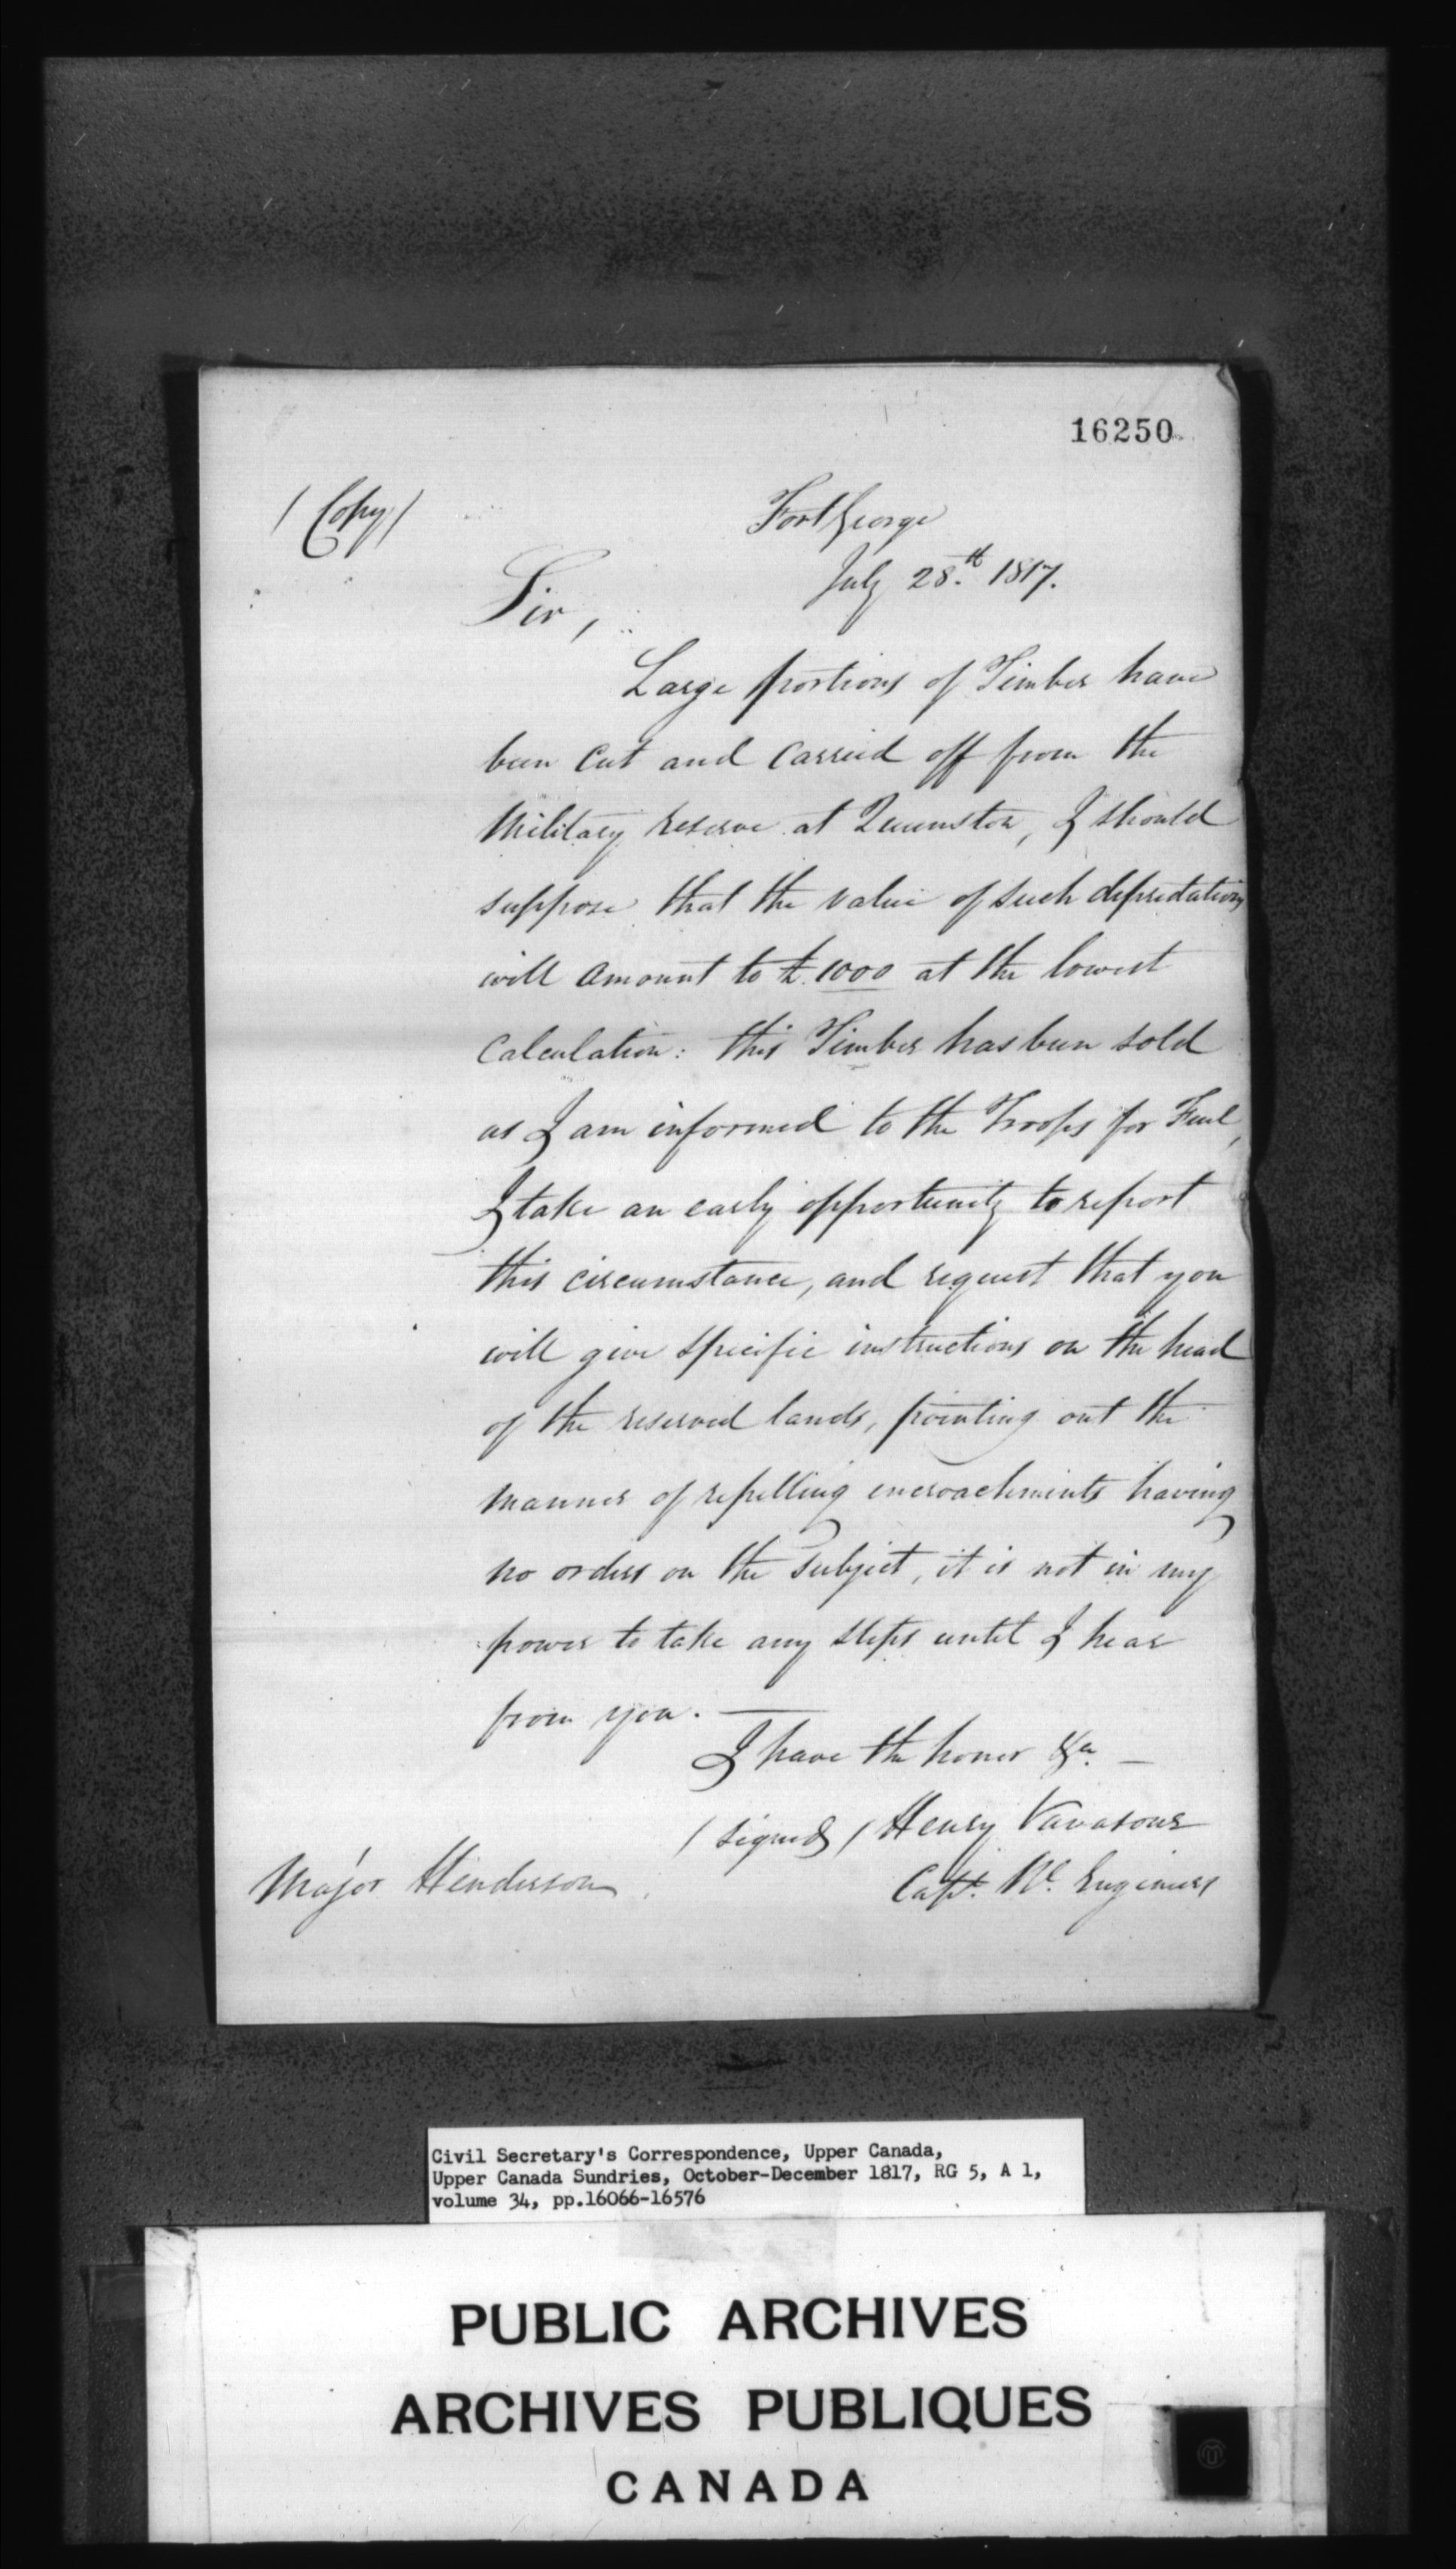 16250
/ Copy /
Fort George
July 28.th 1817.
Sir,
Large portions of Timber have
been cut and carried off from the
Military reserve at Queenston, I should
suppose that the value of such depredations
will amount to £.1000 at the lowest
calculation: this Timber has been sold
as I am informed to the Troops for Fuel,
I take an early opportunity to report
this circumstance, and request that you
will give specific instructions on the head
of the reserved lands, pointing out the
manner of repelling encroachments having
no orders on the subject, it is not in my
power to take any steps until I hear
from you. —
I have the honor &a. —
/ signed / Henry Vavasour
Capt. Rl. Engineers
Major Henderson
Civil Secretary's Correspondence, Upper Canada,
Upper Canada Sundries, October-December 1817, RG 5, A 1,
volume 34, pp.16066-16576
PUBLIC ARCHIVES
ARCHIVES PUBLIQUES
CANADA